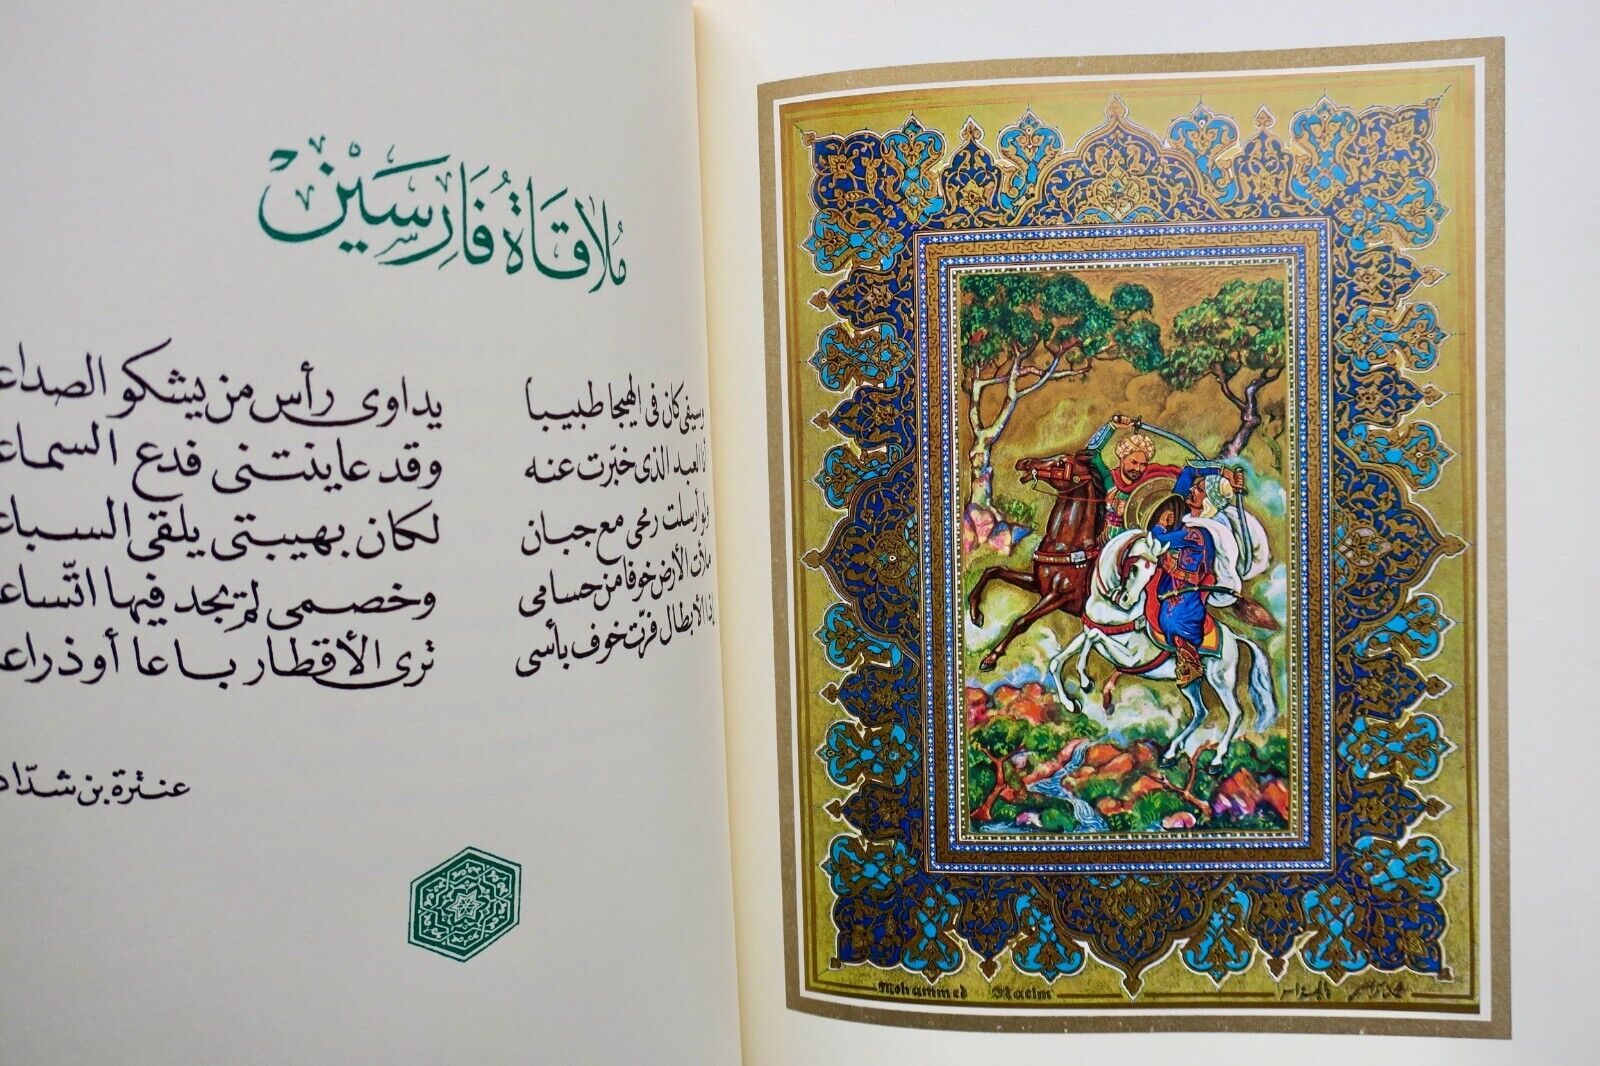 ملاقاة فارسين
وسيفى كان فى الهيجا طبيبا يداوى رأس من يشكو الصداعا
أنا العبد الذى خبّرت عنه وقد عاينتنى فدع السماعا
ولو أرسلت رمحى مع جبان لكان بهيبتى يلقى السباعا
ملأت الأرض خوفا من حسامى وخصمى لم يجد فيها اتّساعا
إذا الأبطال فرّت خوف بأسى ترى الأقطار باعا أو ذراعا
عنترة بن شدّاد
Mohammed Racim
محمد راسم الجزائر